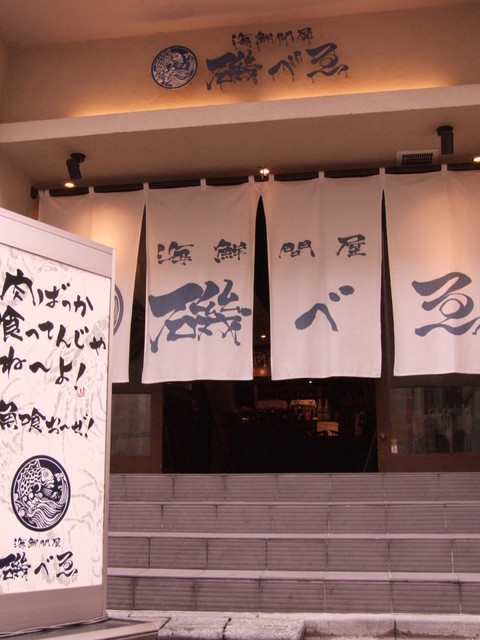 海鮮問屋
磯べゑ
海鮮問屋
磯べゑ
肉ばっか
喰ってんじゃ
ね〜よ！
魚喰お〜ぜ！
海鮮問屋
磯べゑ